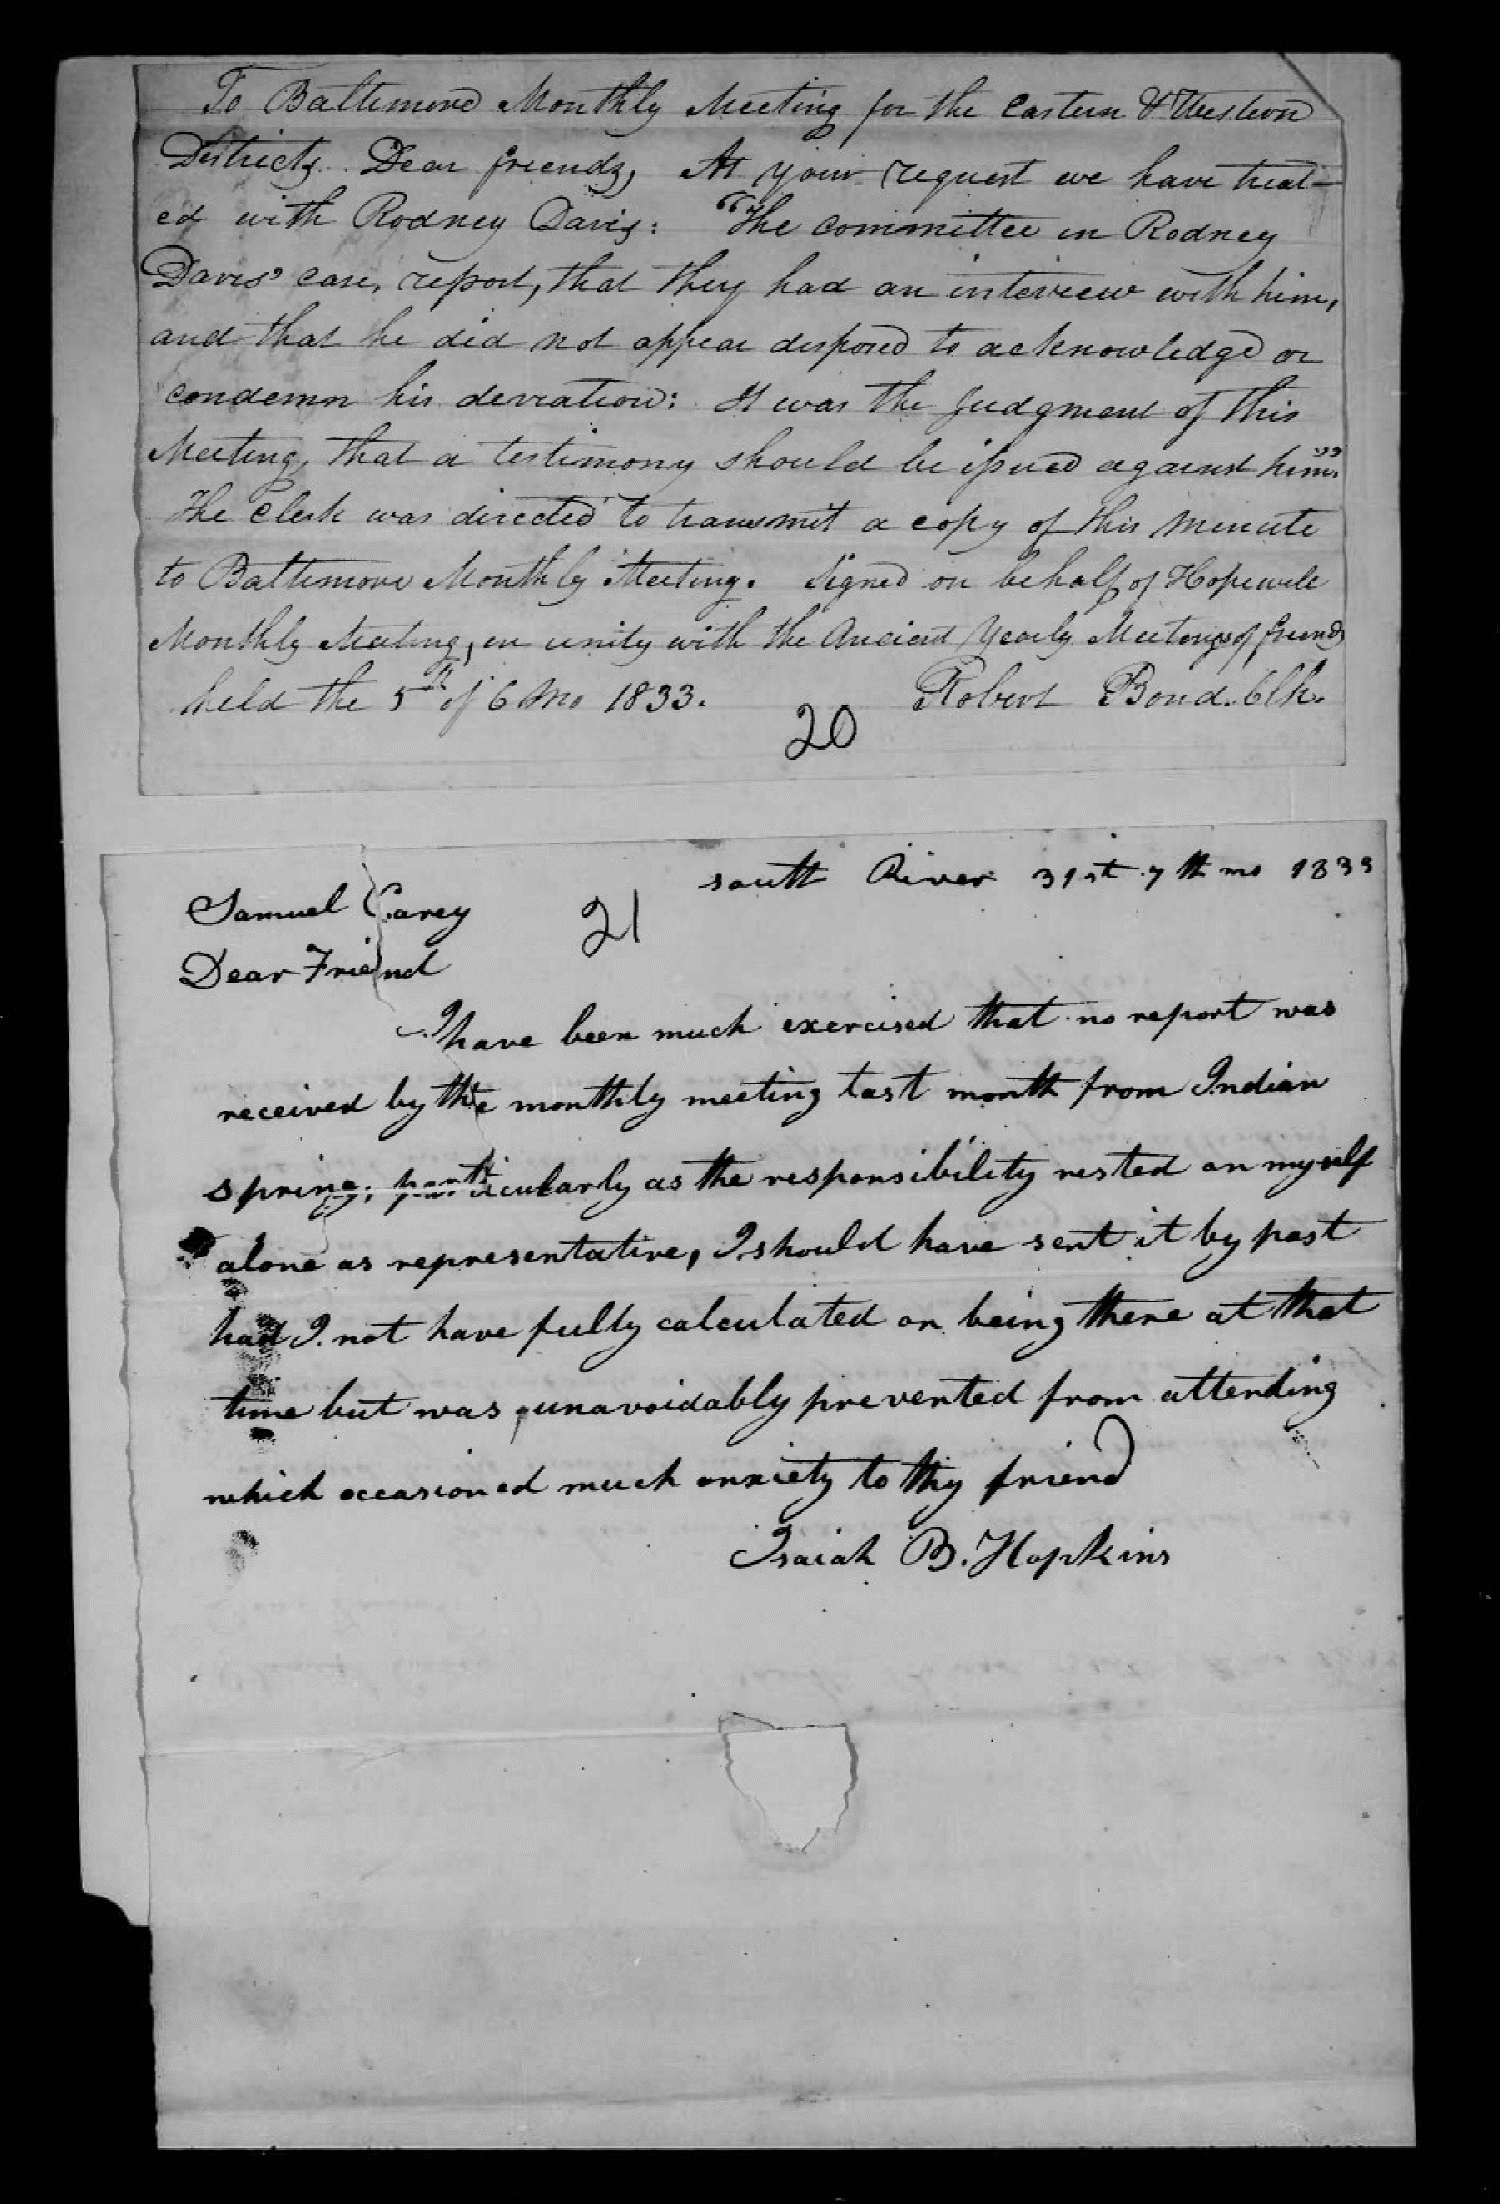 To Baltimore Monthly Meeting for the Eastern & Western
Districts. Dear friends, At your request we have treat-
ed with Rodney Davis: "The committee in Rodney
Davis' case, report, that they had an interview with him,
and that he did not appear disposed to acknowledge or
condemn his deviation: It was the judgment of this
Meeting, that a testimony should be issued against him."
The Clerk was directed to transmit a copy of this minute
to Baltimore Monthly Meeting. Signed on behalf of Hopewell
Monthly Meeting, in unity with the Ancient Yearly Meeting of friends
held the 5th of 6 Mo 1833. Robert Bond. Clk.
20
south River 31st 7th mo 1833
Samuel Carey
21
Dear Friend
I have been much exercised that no report was
received by the monthly meeting last month from Indian
spring; particularly as the responsibility rested on myself
alone as representative, I should have sent it by post
had I not have fully calculated on being there at that
time but was unavoidably prevented from attending
which occasioned much anxiety to thy friend
Isaiah B. Hopkins